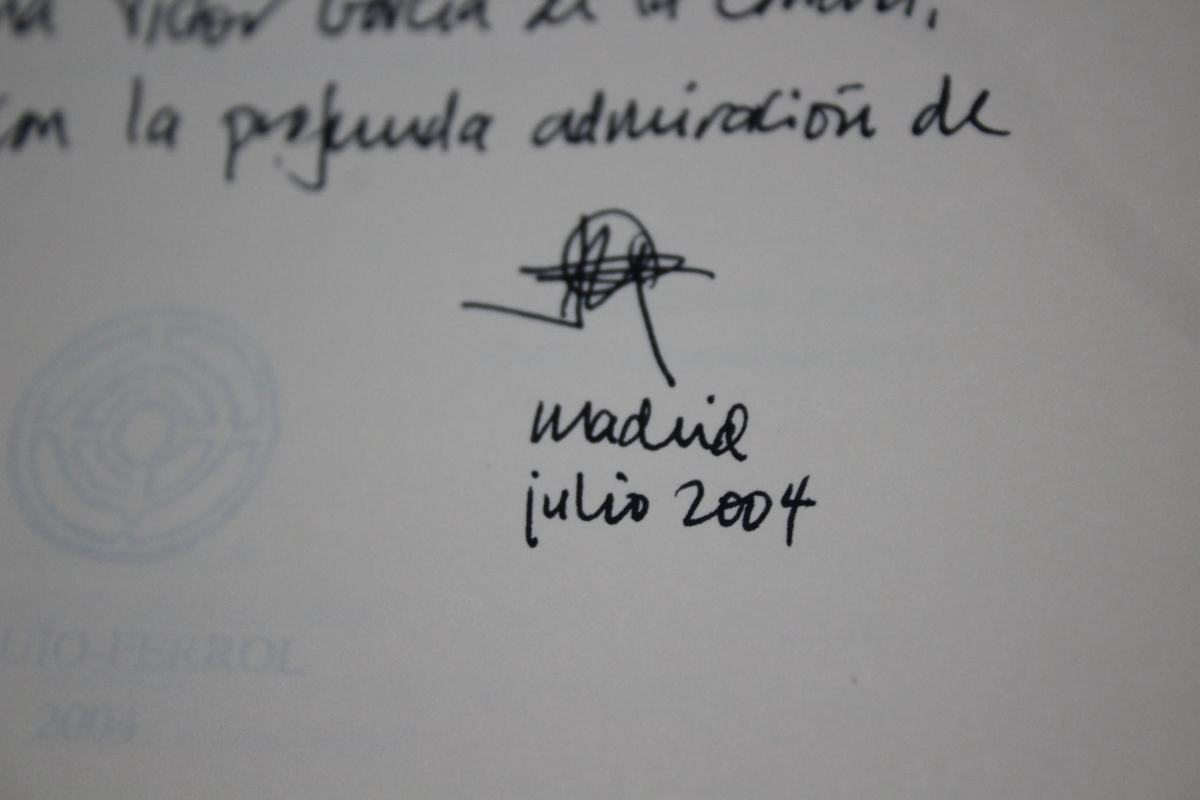 Víctor García de la Concha,
con la profunda admiración de
madrid
julio 2004
UIO-FERROL
2004